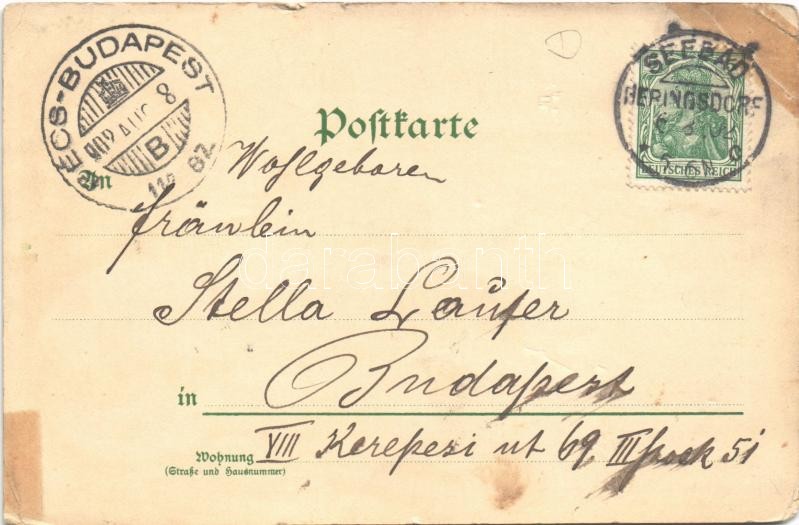 BÉCS-BUDAPEST
902 AUG 8
B
SEEBAD
HERINGSDORF
DEUTSCHES REICH
Postkarte
An Wohlgeboren
Fräulein
darabanth
Stella Laufer
in Budapest
Wohnung VIII Kerepesi ut 69. III
(Straße und Hausnummer)